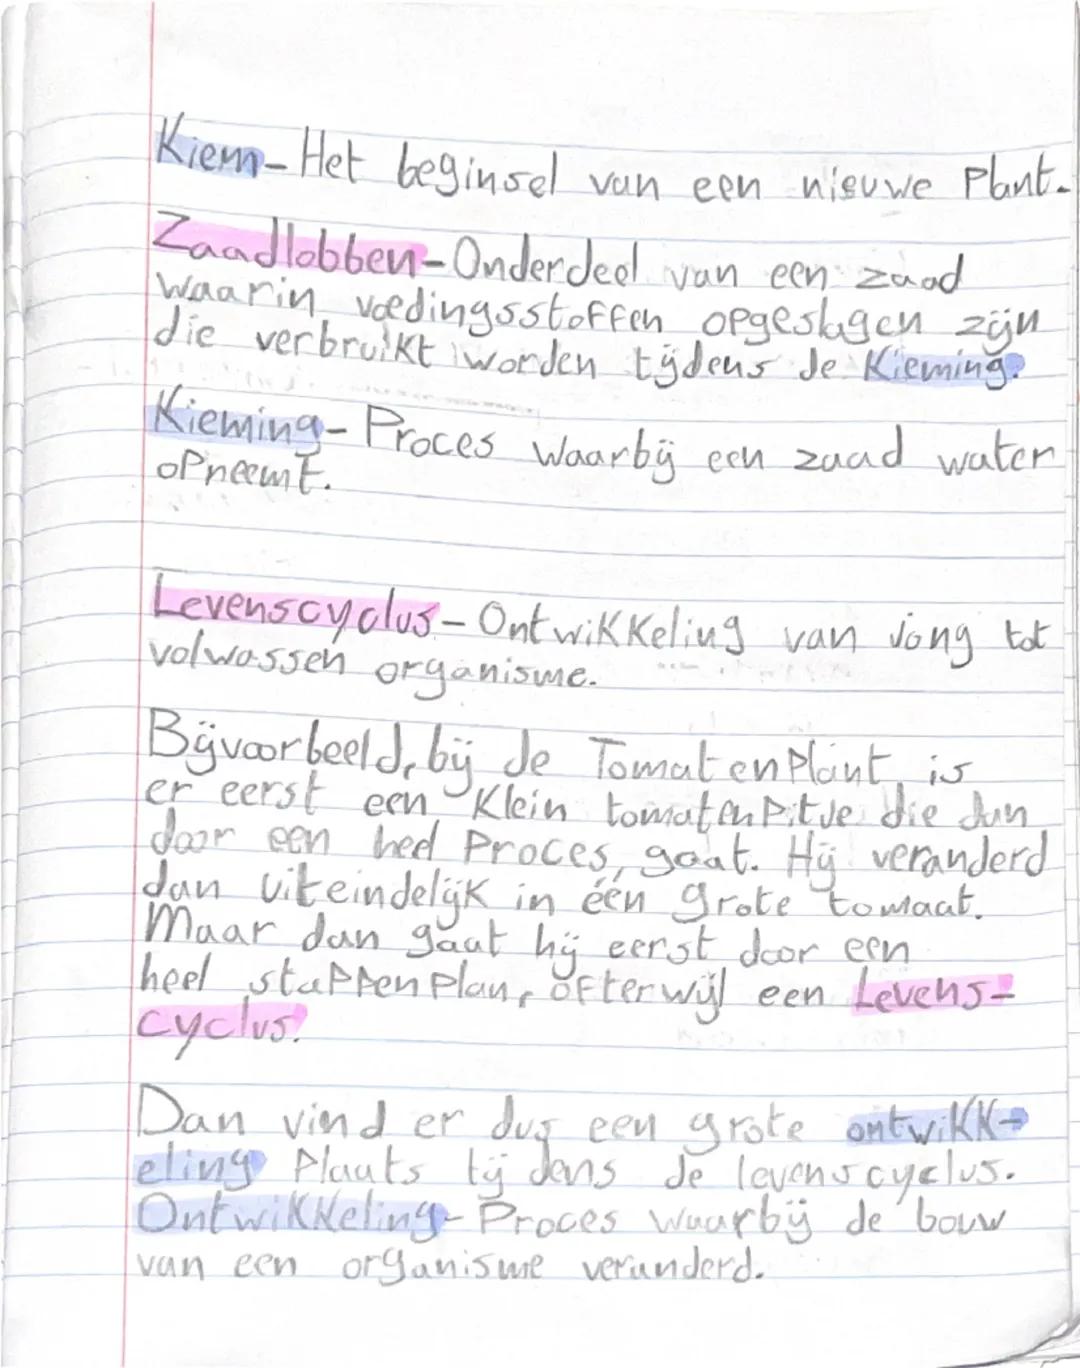 Kiem - Het beginsel van een nieuwe Plant.
Zaadlobben - Onderdeel van een zaad
waarin voedingsstoffen opgeslagen zijn
die verbruikt worden tijdens de Kieming.
Kieming - Proces waarbij een zaad water
opneemt.
Levenscyclus - Ontwikkeling van jong tot
volwassen organisme.
Bijvoorbeeld, bij de Tomatenplant is
er eerst een Klein tomatenpitje die dan
door een heel Proces, gaat. Hij veranderd
dan uiteindelijk in één grote tomaat.
Maar dan gaat hij eerst door een
heel stappenplan, ofterwijl een Levens-
cyclus.
Dan vind er dus een grote ontwikk-
eling Plaats tijdens de levenscyclus.
Ontwikkeling - Proces waarbij de bouw
van een organisme veranderd.